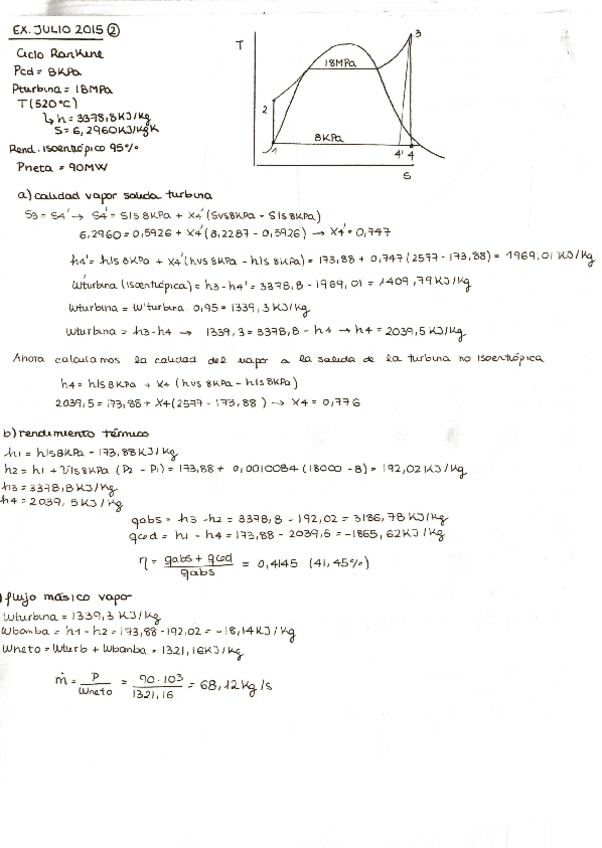 EX. JULIO 2015 ②
Ciclo Rankine
Pcd = 8KPa
Pturbina = 18MPa
T (520°C)
↳ h = 3378,8 KJ/Kg
S = 6,2960 KJ/KgK
Rend. Isoentrópico 95%
Pneta = 90MW
T
3
18MPa
2
8KPa
1
4' 4
S
a) calidad vapor salida turbina
S3 = S4' → S4' = Sls8KPa + X4' (Svs8KPa - Sls8KPa)
6,2960 = 0,5926 + X4' (8,2287 - 0,5926) → X4' = 0,747
h4' = hls8KPa + X4' (hvs8KPa - hls8KPa) = 173,88 + 0,747 (2577 - 173,88) = 1969,01 KJ/Kg
W'turbina (isoentrópica) = h3 - h4' = 3378,8 - 1969,01 = 1409,79 KJ/Kg
Wturbina = W'turbina · 0,95 = 1339,3 KJ/Kg
Wturbina = h3 - h4 → 1339,3 = 3378,8 - h4 → h4 = 2039,5 KJ/Kg
Ahora calculamos la calidad del vapor a la salida de la turbina no isoentrópica
h4 = hls8KPa + X4 (hvs8KPa - hls8KPa)
2039,5 = 173,88 + X4 (2577 - 173,88) → X4 = 0,776
b) rendimiento térmico
h1 = hls8KPa - 173,88 KJ/Kg
h2 = h1 + Vls8KPa (P2 - P1) = 173,88 + 0,0010084 (18000 - 8) = 192,02 KJ/Kg
h3 = 3378,8 KJ/Kg
h4 = 2039,5 KJ/Kg
qabs = h3 - h2 = 3378,8 - 192,02 = 3186,78 KJ/Kg
qced = h1 - h4 = 173,88 - 2039,5 = -1865,62 KJ/Kg
η = qabs + qced / qabs = 0,4145 (41,45%)
) flujo másico vapor
Wturbina = 1339,3 KJ/Kg
Wbomba = h1 - h2 = 173,88 - 192,02 = -18,14 KJ/Kg
Wneto = Wturb + Wbomba = 1321,16 KJ/Kg
ṁ = P / Wneto = 90·103 / 1321,16 = 68,12 Kg/s